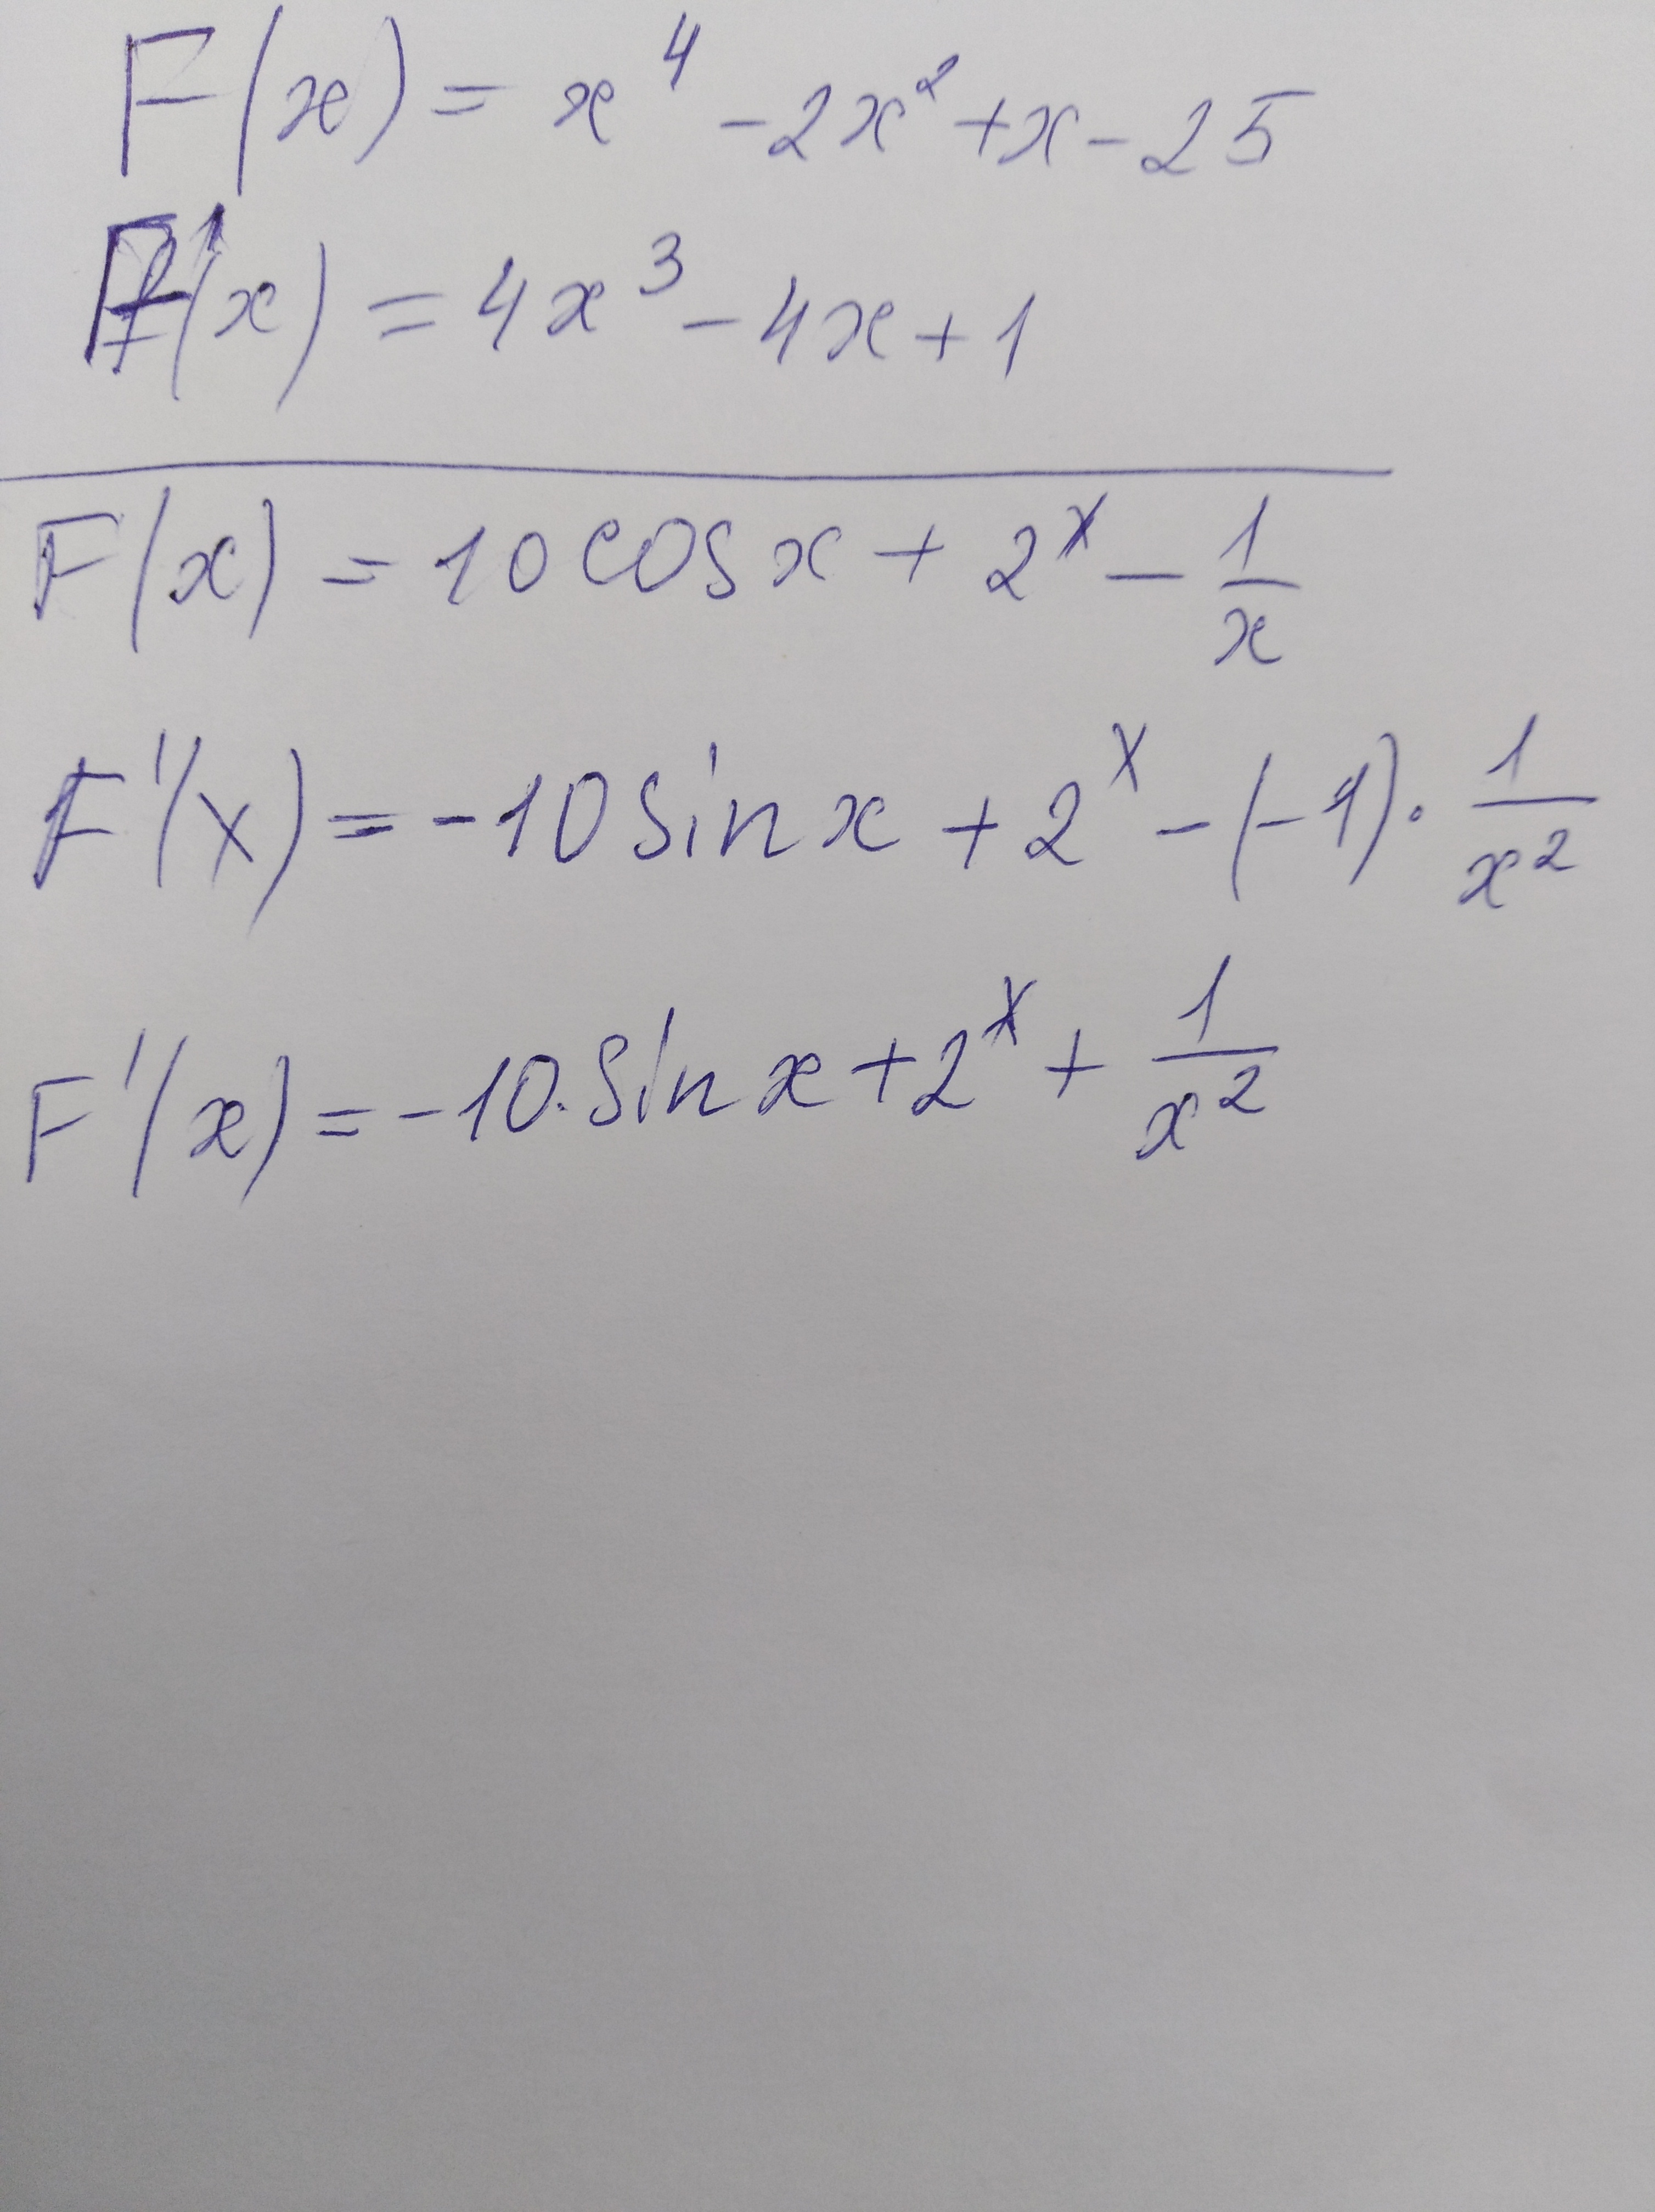 F(x) = x⁴ - 2x² + x - 25
F'(x) = 4x³ - 4x + 1
F(x) = 10 cos x + 2ˣ - 1/x
F'(x) = -10 sin x + 2ˣ - (-1) · 1/x²
F'(x) = -10 · sin x + 2ˣ + 1/x²